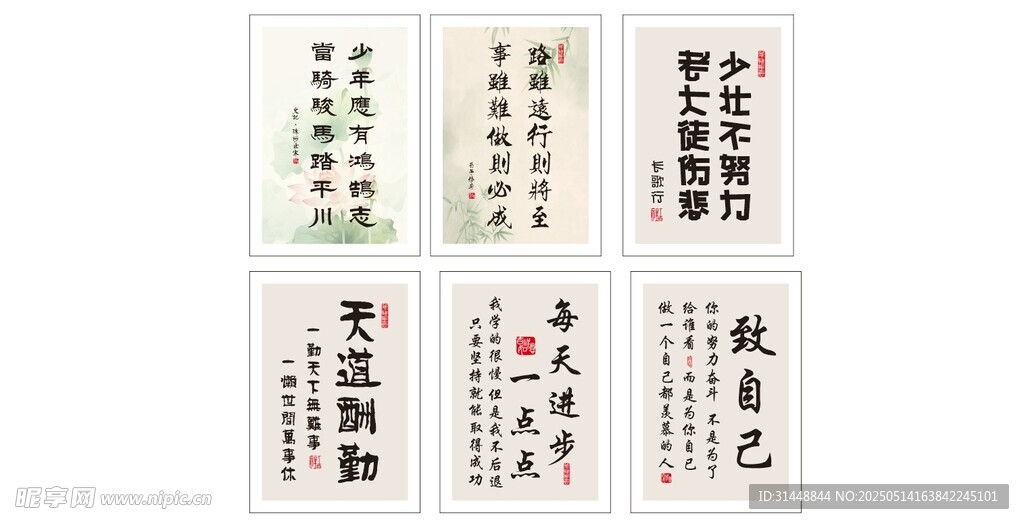 少年應有鴻鵠志
當騎駿馬踏平川
路雖遠行則將至
事雖難做則必成
少壮不努力
老大徒伤悲
长歌行
天道酬勤
一勤天下無難事
一懶世間萬事休
每天进步
一点点
我学的很慢但是我不后退
只要坚持就能取得成功
致自己
你的努力奋斗 不是为了
给谁看 而是为你自己
做一个自己都羡慕的人
昵享网 www.nipic.cn
ID:31448844 NO:20250514163842245101